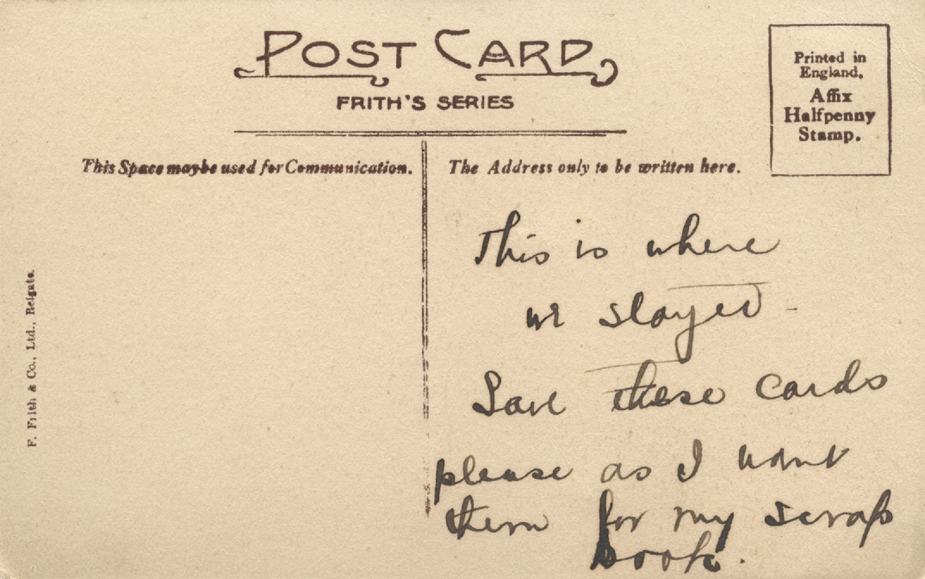 POST CARD
FRITH'S SERIES
Printed in
England.
Affix
Halfpenny
Stamp.
This Space may be used for Communication.
The Address only to be written here.
F. Frith & Co., Ltd., Reigate.
This is where
we stayed -
Save these cards
please as I want
them for my scrap
book.